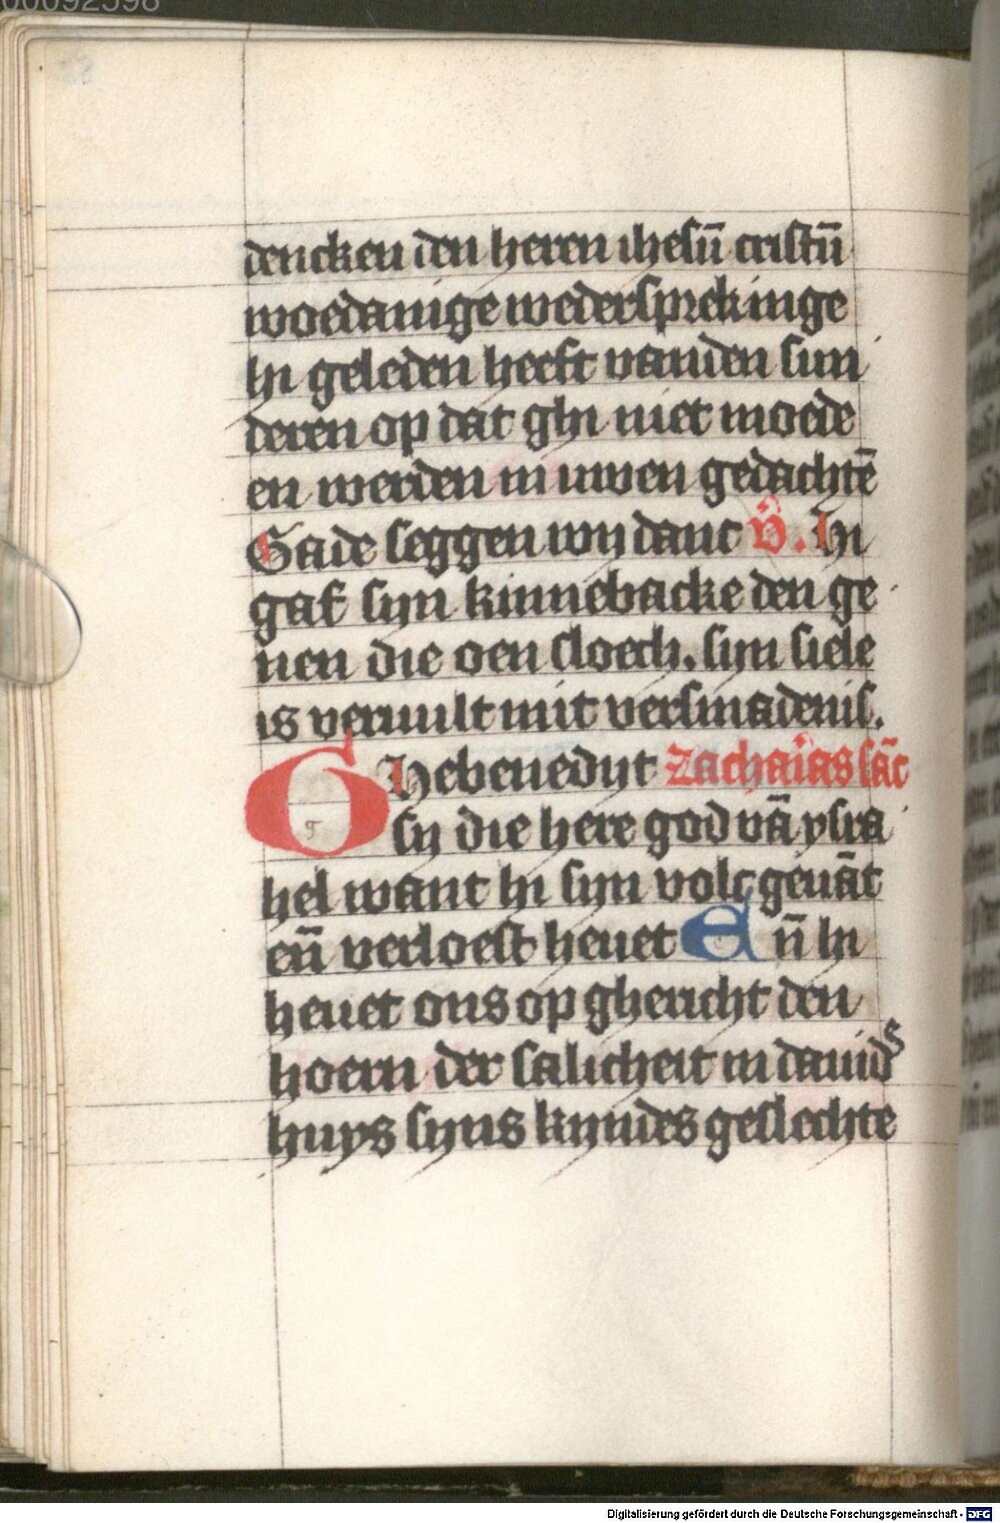 00092598
dencken den heren ihesū cristū
woedanige wedersprekinge
hi geleden heeft vanden sun
deren op dat ghi niet moede
en werden in uwen gedachtē
Gade seggen wy danc v̄. Hi
gaf syn kinnebacke den ge
nen die oen sloech. syn siele
is vervult mit versmadenis.
Ghebenedyt zachaīas sāc
sy die here god vā ysra
hel want hi syn volc geuāt
eñ verloest heuet Eñ hi
heuet ons op ghericht den
hoern der salicheit in dauids
huys syns kyndes geslechte
Digitalisierung gefördert durch die Deutsche Forschungsgemeinschaft - DFG